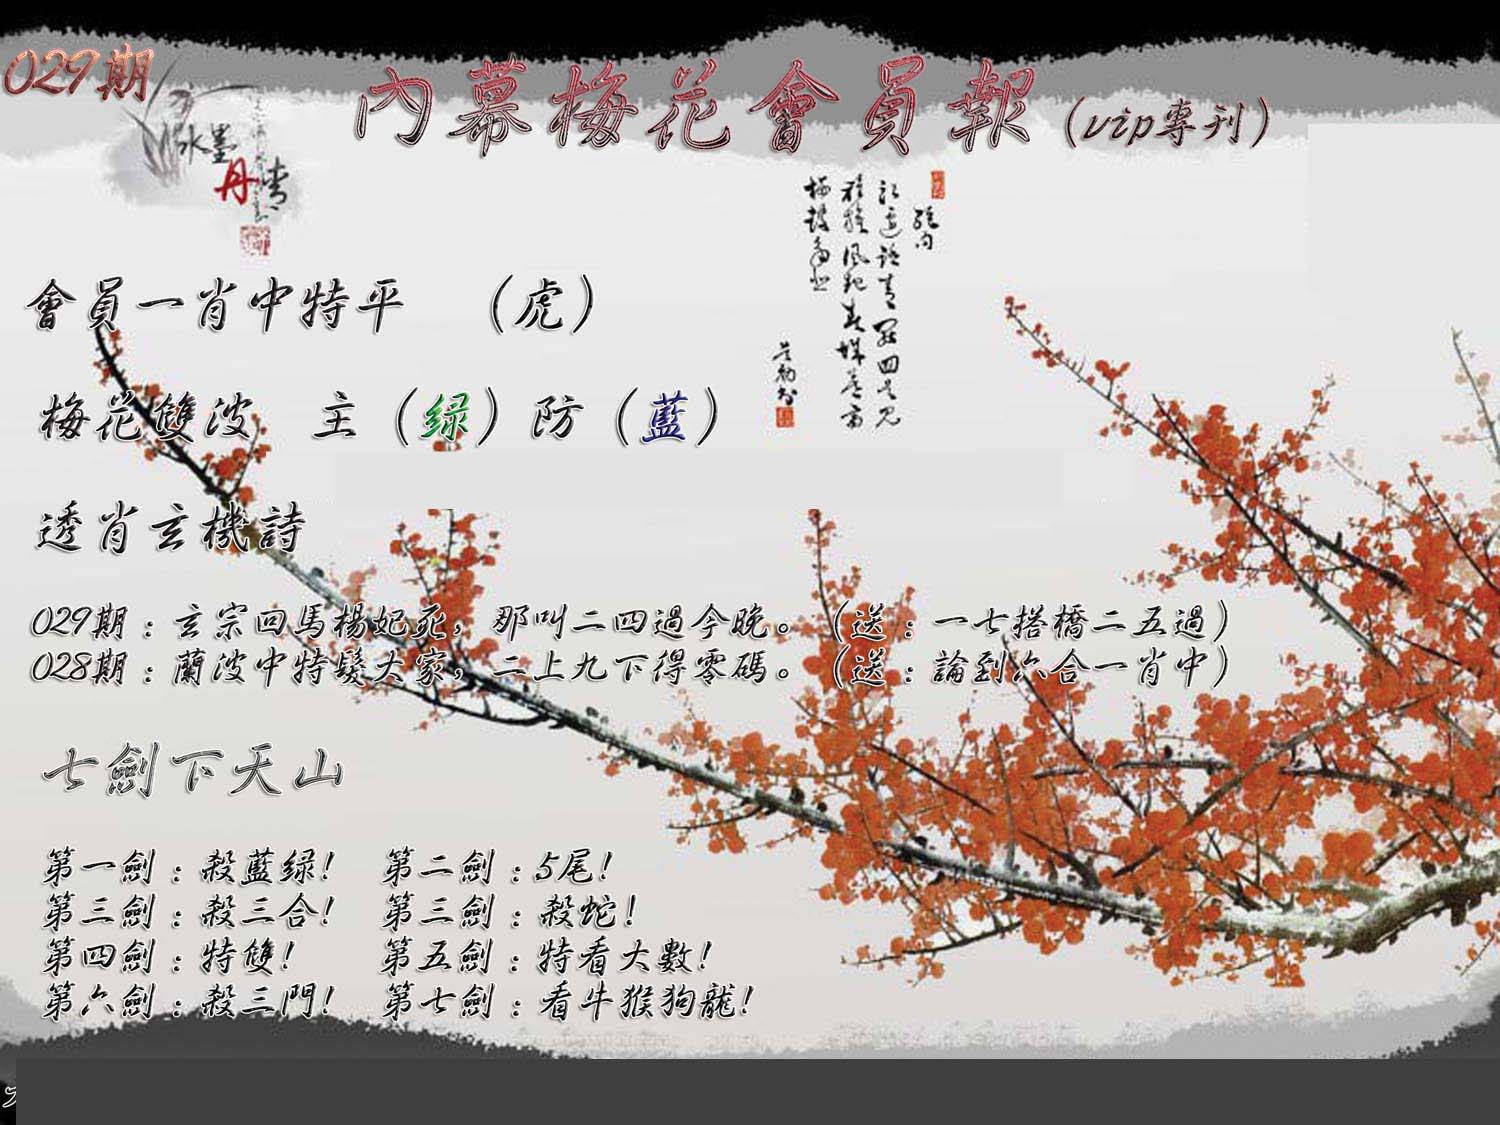 029期
內幕梅花會員報（vip專刊）
水墨
丹青
會員一肖中特平 （虎）
梅花雙波 主（绿）防（藍）
透肖玄機詩
029期：玄宗回馬楊妃死，那叫二四過今晚。（送：一七搭橋二五過）
028期：蘭波中特髮大家，二上九下得零碼。（送：論到六合一肖中）
七劍下天山
第一劍：殺藍绿! 第二劍：5尾!
第三劍：殺三合! 第三劍：殺蛇!
第四劍：特雙! 第五劍：特看大數!
第六劍：殺三門! 第七劍：看牛猴狗龍!